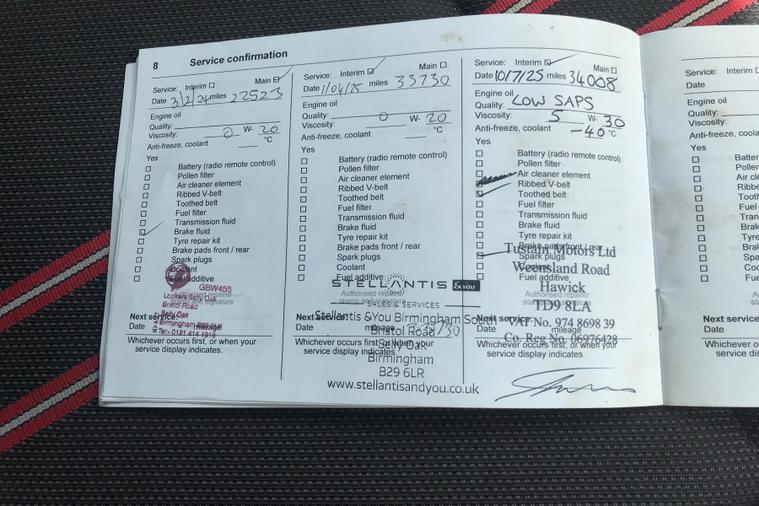 8 Service confirmation
Service: Interim Main
Date 3/2/24 miles 22523
Engine oil
Quality:
Viscosity: 0 W- 20
Anti-freeze, coolant °C
Yes
Battery (radio remote control)
Pollen filter
Air cleaner element
Ribbed V-belt
Toothed belt
Fuel filter
Transmission fluid
Brake fluid
Tyre repair kit
Brake pads front / rear
Spark plugs
Coolant
Fuel additive
GBW455
Lookers Selly Oak
Bristol Road
Selly Oak
Birmingham
Next service:
Date mileage
Whichever occurs first, or when your
service display indicates.
Service: Interim Main
Date 1/04/25 miles 33730
Engine oil
Quality:
Viscosity: 0 W- 20
Anti-freeze, coolant °C
Yes
Battery (radio remote control)
Pollen filter
Air cleaner element
Ribbed V-belt
Toothed belt
Fuel filter
Transmission fluid
Brake fluid
Tyre repair kit
Brake pads front / rear
Spark plugs
Coolant
Fuel additive
STELLANTIS &you
SALES & SERVICES
Stellantis &You Birmingham South
Bristol Road
Selly Oak
Birmingham
B29 6LR
www.stellantisandyou.co.uk
Next service:
Date mileage
Whichever occurs first, or when your
service display indicates.
Service: Interim Main
Date 10/7/25 miles 34008
Engine oil
Quality: LOW SAPS
Viscosity: 5 W- 30
Anti-freeze, coolant -40 °C
Yes
Battery (radio remote control)
Pollen filter
Air cleaner element
Ribbed V-belt
Toothed belt
Fuel filter
Transmission fluid
Brake fluid
Tyre repair kit
Brake pads front / rear
Spark plugs
Coolant
Fuel additive
Tustain Motors Ltd
Weensland Road
Hawick
TD9 8LA
VAT No. 974 8698 39
Co. Reg No. 06976428
Next service:
Date mileage
Whichever occurs first, or when your
service display indicates.
Service: Interim
Date
Engine oil
Quality:
Viscosity:
Yes